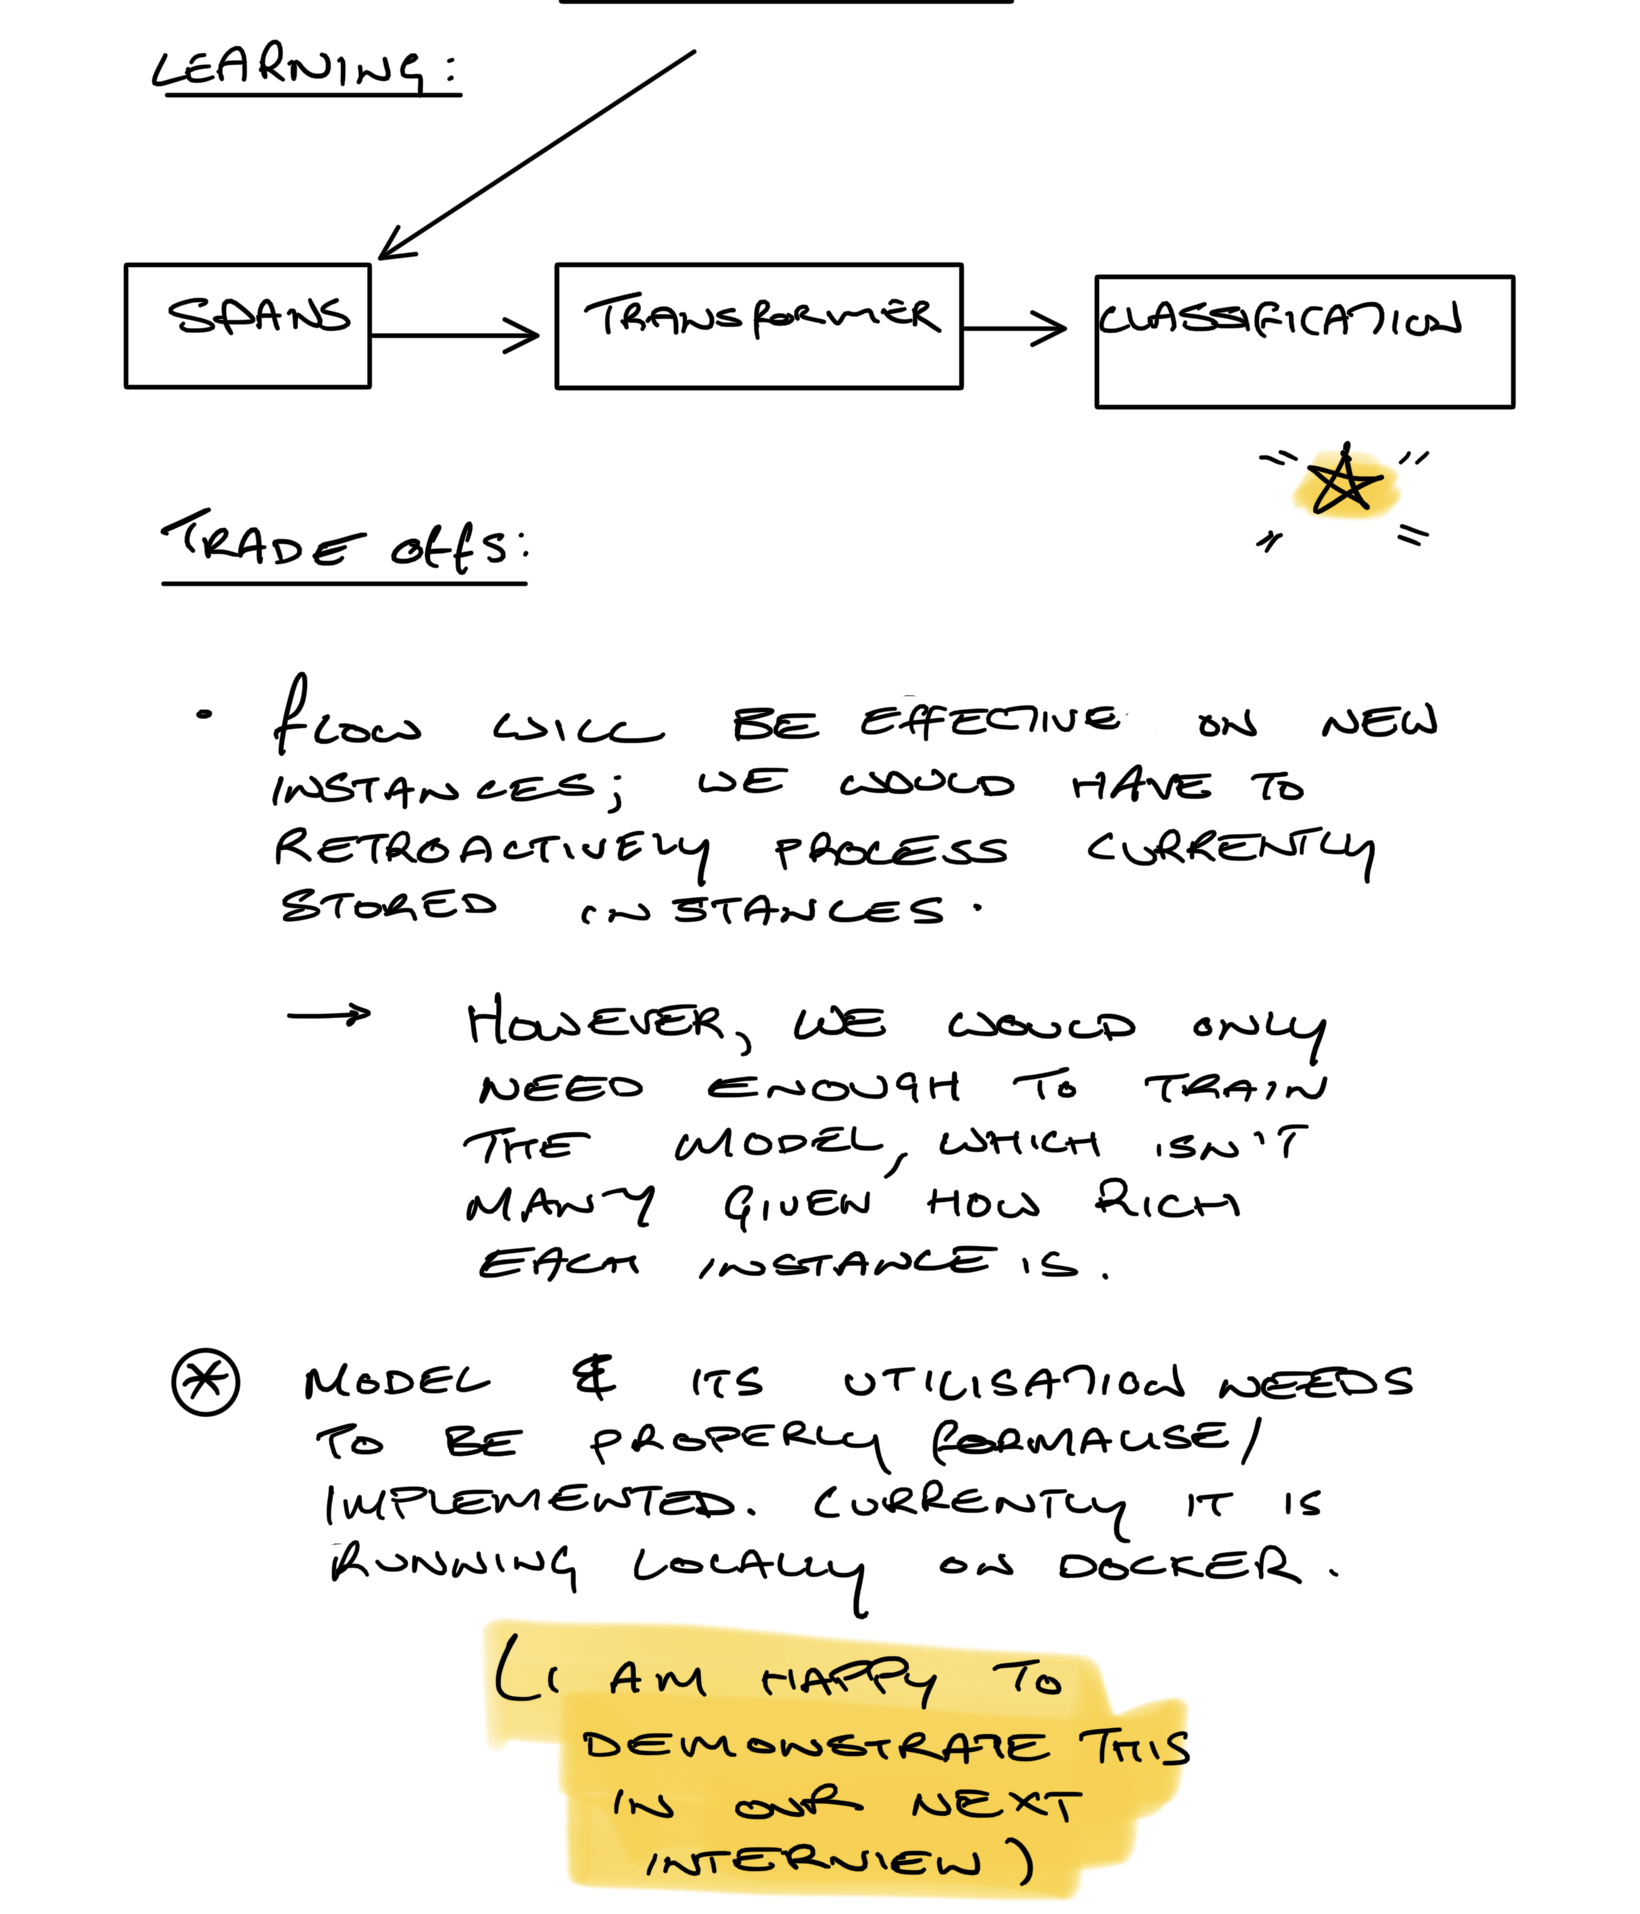 LEARNING:
SPANS
TRANSFORMER
CLASSIFICATION
TRADE OFFS:
• FLOW WILL BE EFFECTIVE ON NEW
INSTANCES; WE WOULD HAVE TO
RETROACTIVELY PROCESS CURRENTLY
STORED INSTANCES.
→ HOWEVER, WE WOULD ONLY
NEED ENOUGH TO TRAIN
THE MODEL, WHICH ISN'T
MANY GIVEN HOW RICH
EACH INSTANCE IS.
MODEL & ITS UTILISATION NEEDS
TO BE PROPERLY FORMALISE/
IMPLEMENTED. CURRENTLY IT IS
RUNNING LOCALLY ON DOCKER.
(I AM HAPPY TO
DEMONSTRATE THIS
IN OUR NEXT
INTERVIEW)